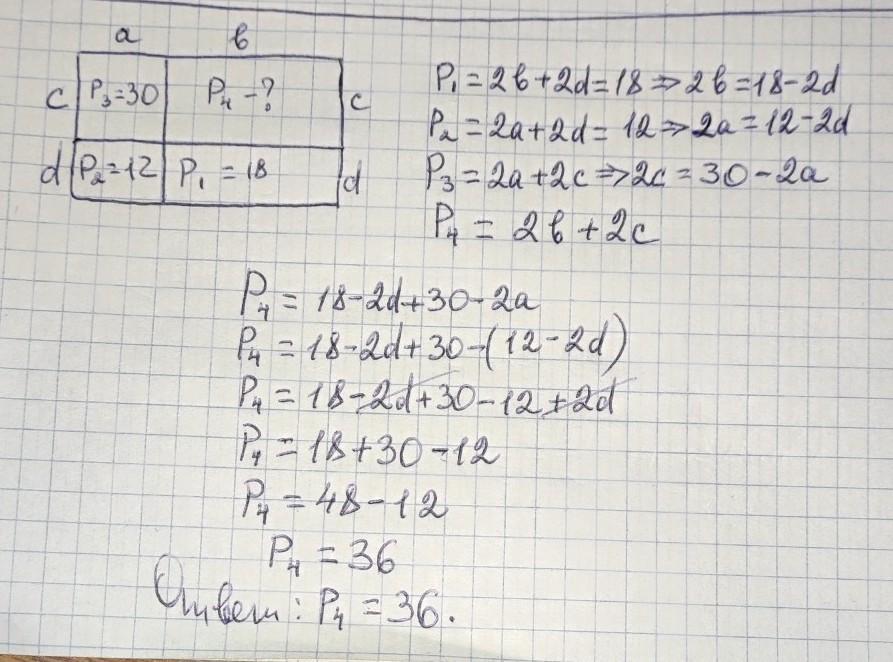 a b
c P₃=30 P₄ -? c
d P₂=12 P₁ = 18 d
P₁ = 2b+2d=18⇒2b=18-2d
P₂ = 2a+2d= 12⇒2a=12-2d
P₃ = 2a+2c⇒2c=30-2a
P₄ = 2b+2c
P₄ = 18-2d+30-2a
P₄ = 18-2d+30-(12-2d)
P₄ = 18-2d+30-12+2d
P₄ = 18+30-12
P₄ = 48-12
P₄ = 36
Ответ: P₄ = 36.